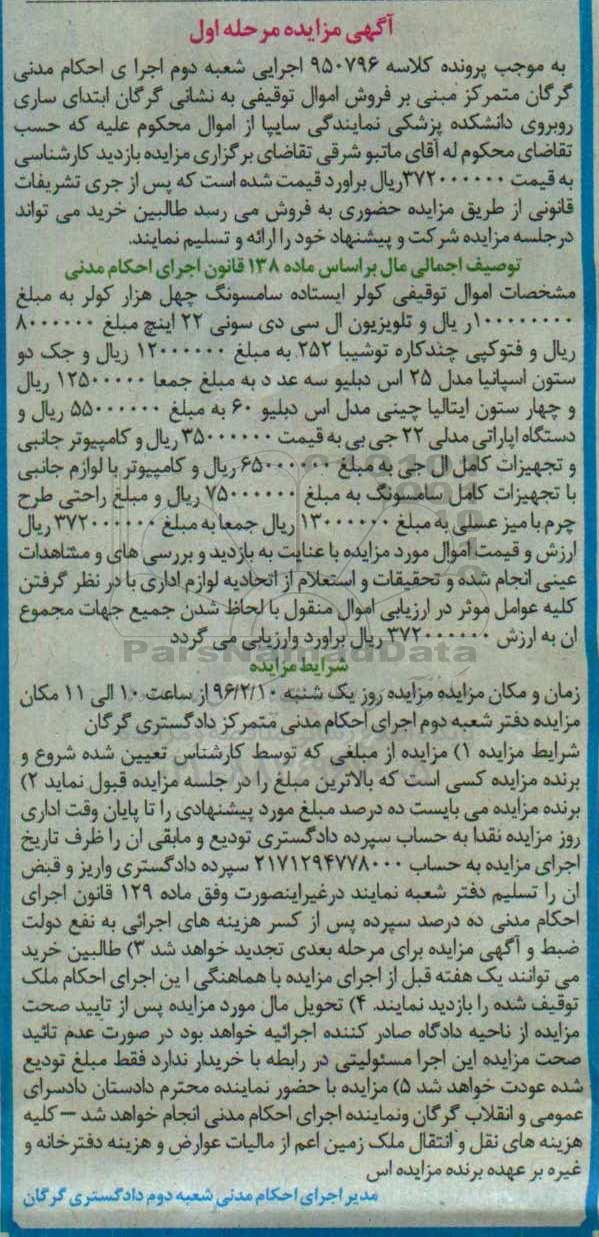 آگهی مزایده مرحله اول
به موجب پرونده کلاسه ۹۵۰۷۹۶ اجرایی شعبه دوم اجرا ی احکام مدنی
گرگان متمرکز مبنی بر فروش اموال توقیفی به نشانی گرگان ابتدای ساری
روبروی دانشکده پزشکی نمایندگی سایپا از اموال محکوم علیه که حسب
تقاضای محکوم له آقای ماتیو شرقی تقاضای برگزاری مزایده بازدید کارشناسی
به قیمت ۳۷۲۰۰۰۰۰۰ریال براورد قیمت شده است که پس از جری تشریفات
قانونی از طریق مزایده حضوری به فروش می رسد طالبین خرید می تواند
درجلسه مزایده شرکت و پیشنهاد خود را ارائه و تسلیم نمایند.
توصیف اجمالی مال بر اساس ماده ۱۳۸ قانون اجرای احکام مدنی
مشخصات اموال توقیفی کولر ایستاده سامسونگ چهل هزار کولر به مبلغ
۱۰۰۰۰۰۰۰۰ر یال و تلویزیون ال سی دی سونی ۲۲ اینچ مبلغ ۸۰۰۰۰۰۰
ریال و فتوکپی چندکاره توشیبا ۲۵۲ به مبلغ ۱۲۰۰۰۰۰۰ ریال و جک دو
ستون اسپانیا مدل ۲۵ اس دبلیو سه عد د به مبلغ جمعا ۱۲۵۰۰۰۰۰ ریال
و چهار ستون ایتالیا چینی مدل اس دبلیو ۶۰ به مبلغ ۵۵۰۰۰۰۰۰ ریال و
دستگاه اپاراتی مدلی ۲۲ جی بی به قیمت ۳۵۰۰۰۰۰۰ ریال و کامپیوتر جانبی
و تجهیزات کامل ال جی به مبلغ ۶۵۰۰۰۰۰۰ ریال و کامپیوتر با لوازم جانبی
با تجهیزات کامل سامسونگ به مبلغ ۷۵۰۰۰۰۰۰ ریال و مبلغ راحتی طرح
چرم با میز عسلی به مبلغ ۱۳۰۰۰۰۰۰ ریال جمعا به مبلغ ۳۷۲۰۰۰۰۰۰ ریال
ارزش و قیمت اموال مورد مزایده با عنایت به بازدید و بررسی های و مشاهدات
عینی انجام شده و تحقیقات و استعلام از اتحادیه لوازم اداری با در نظر گرفتن
کلیه عوامل موثر در ارزیابی اموال منقول با لحاظ شدن جمیع جهات مجموع
ان به ارزش ۳۷۲۰۰۰۰۰۰ ریال براورد وارزیابی می گردد
ParsNamadData
شرایط مزایده
زمان و مکان مزایده مزایده روز یک شنبه ۹۶/۲/۱۰ از ساعت ۱۰ الی ۱۱ مکان
مزایده دفتر شعبه دوم اجرای احکام مدنی متمرکز دادگستری گرگان
شرایط مزایده ۱) مزایده از مبلغی که توسط کارشناس تعیین شده شروع و
برنده مزایده کسی است که بالاترین مبلغ را در جلسه مزایده قبول نماید ۲)
برنده مزایده می بایست ده درصد مبلغ مورد پیشنهادی را تا پایان وقت اداری
روز مزایده نقدا به حساب سپرده دادگستری تودیع و مابقی ان را ظرف تاریخ
اجرای مزایده به حساب ۲۱۷۱۲۹۴۷۷۸۰۰۰ سپرده دادگستری واریز و قبض
ان را تسلیم دفتر شعبه نمایند درغیراینصورت وفق ماده ۱۲۹ قانون اجرای
احکام مدنی ده درصد سپرده پس از کسر هزینه های اجرائی به نفع دولت
ضبط و آگهی مزایده برای مرحله بعدی تجدید خواهد شد ۳) طالبین خرید
می توانند یک هفته قبل از اجرای مزایده با هماهنگی ا ین اجرای احکام ملک
توقیف شده را بازدید نمایند. ۴) تحویل مال مورد مزایده پس از تایید صحت
مزایده از ناحیه دادگاه صادر کننده اجرائیه خواهد بود در صورت عدم تائید
صحت مزایده این اجرا مسئولیتی در رابطه با خریدار ندارد فقط مبلغ تودیع
شده عودت خواهد شد ۵) مزایده با حضور نماینده محترم دادستان دادسرای
عمومی و انقلاب گرگان ونماینده اجرای احکام مدنی انجام خواهد شد – کلیه
هزینه های نقل و انتقال ملک زمین اعم از مالیات عوارض و هزینه دفترخانه و
غیره بر عهده برنده مزایده اس
مدیر اجرای احکام مدنی شعبه دوم دادگستری گرگان